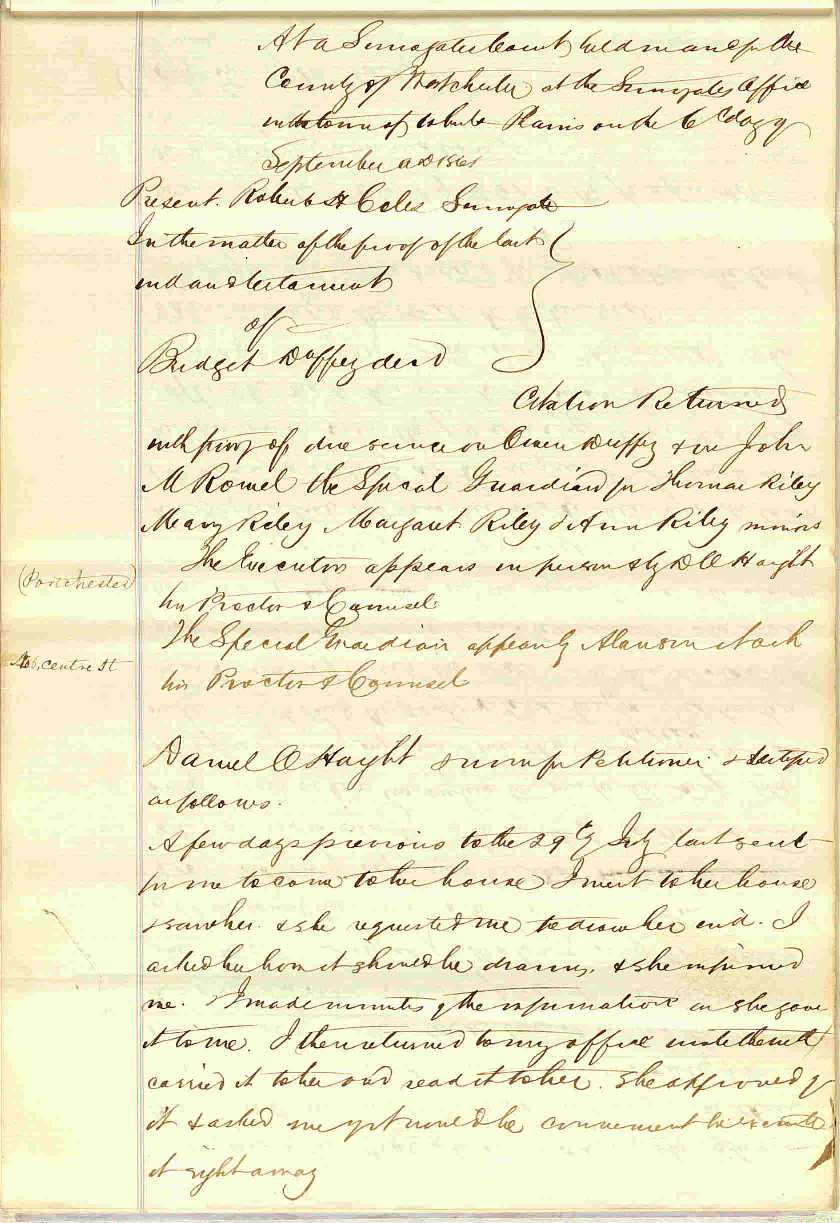 At a Surrogates Court held in and for the
County of Westchester at the Surrogates Office
in the town of White Plains on the 6th day of
September AD 1861
Present. Robert H Coles Surrogate
In the matter of the proof of the last
will and testament
of
Bridget Duffey decd
Citation Returned
with proof of due service on Owen Duffey & on John
M Rowel the Special Guardian for Thomas Riley
Mary Riley Margaret Riley & Ann Riley minors
The Executor appears in person & by D O Haight
(Portchester)
his Proctor & Counsel
The Special Guardian appears by Alanson Nash
No 6, Centre St
his Proctor & Counsel
Daniel O Haight sworn for Petitioner & testified
as follows.
A few days previous to the 29th of July last sent
for me to come to her house I went to her house
& saw her. & she requested me to draw her will. I
asked her how it should be drawn, & she informed
me. I made minutes of the information as she gave
it to me. I then returned to my office wrote the will
carried it to her and read it to her. She approved of
it & asked me if it would be convenient to execute
it right away